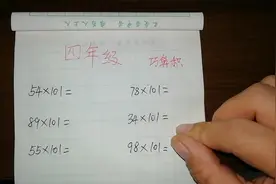 四年级 巧算积
54×101= 78×101=
89×101= 34×101=
55×101= 98×101=